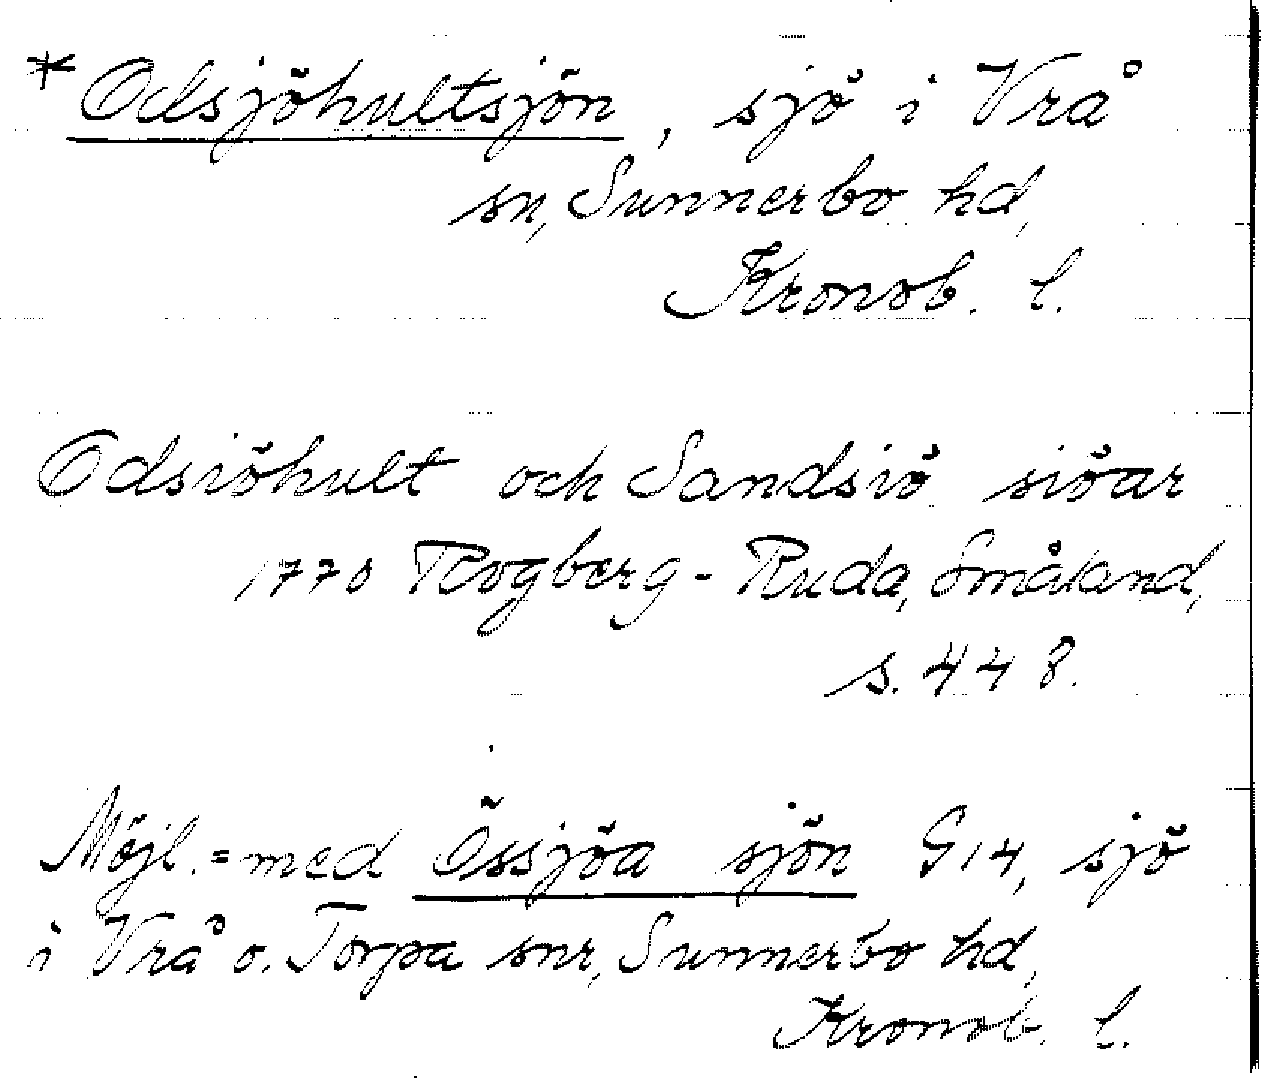 * Odsjöhultsjön, sjö i Vrå
sn, Sunnerbo hd,
Kronob. l.
Odsiöhult och Sandsiö siöar
1770 Rogberg-Ruda, Småland,
s. 448.
Möjl. = med Össjöa sjön G14, sjö
i Vrå o. Torpa snr, Sunnerbo hd,
Kronob. l.